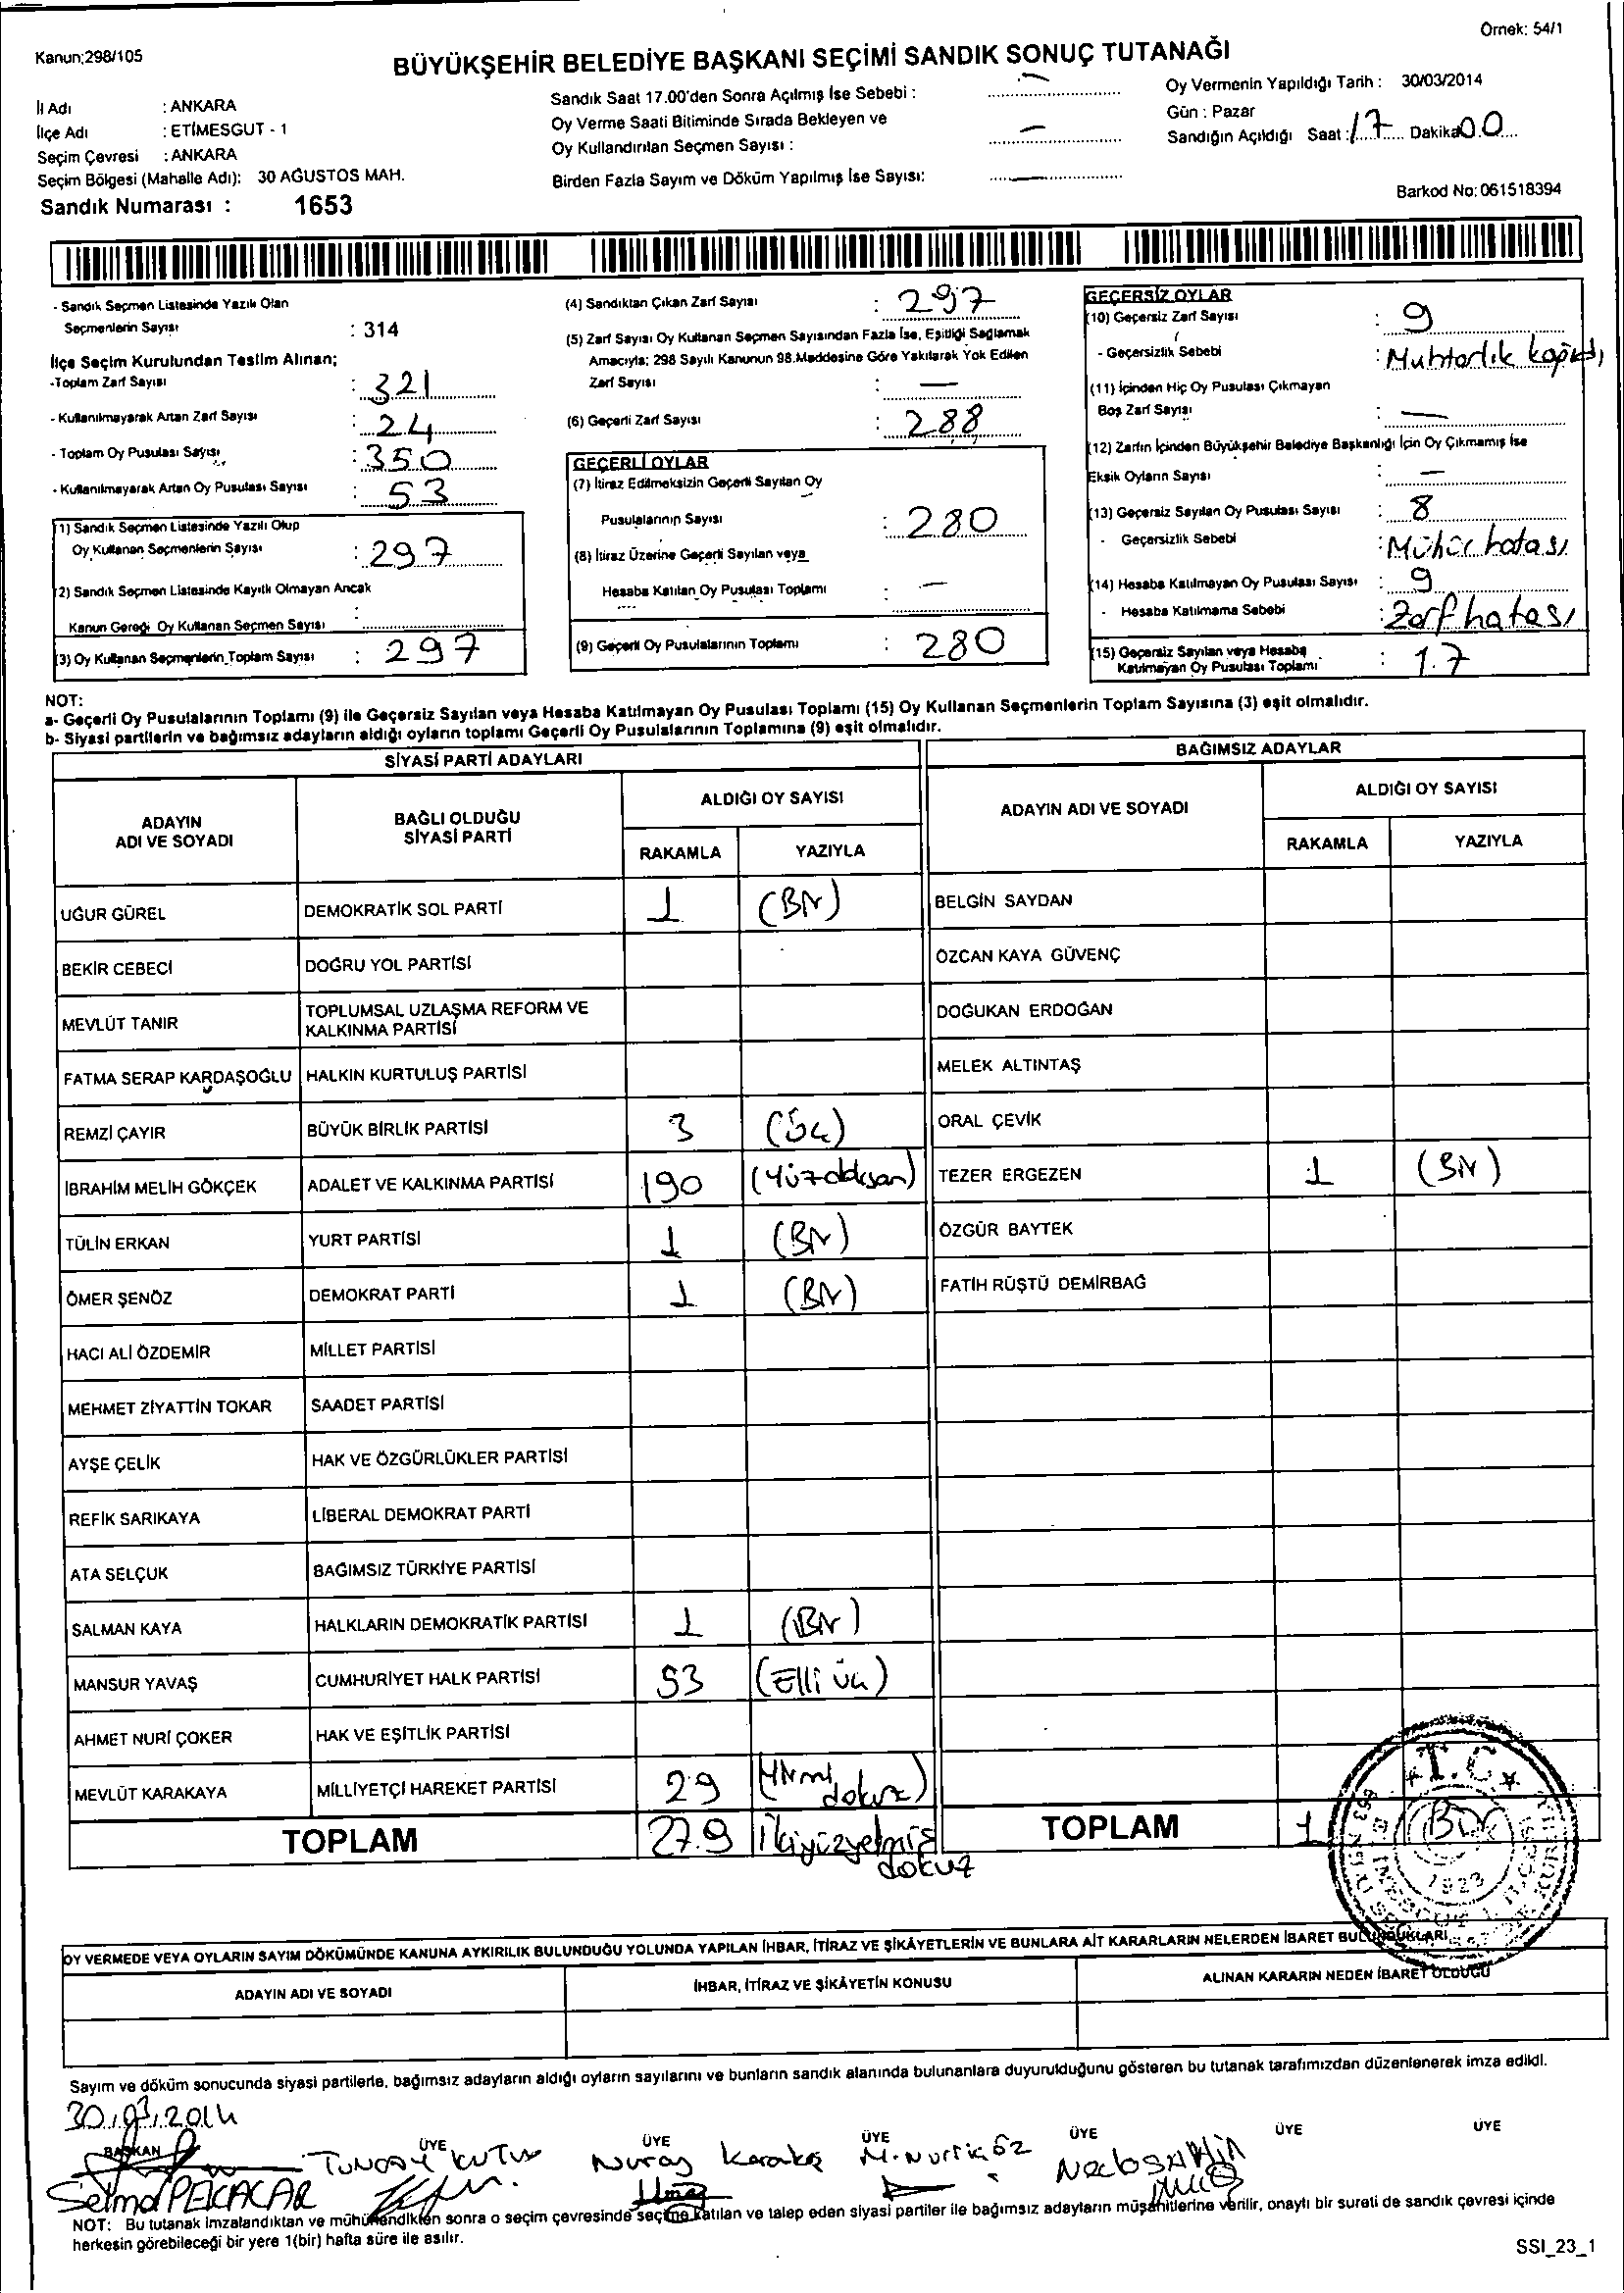 Örnek: 54/1
Kanun:298/105
BÜYÜKŞEHİR BELEDİYE BAŞKANI SEÇİMİ SANDIK SONUÇ TUTANAĞI
İl Adı : ANKARA
İlçe Adı : ETİMESGUT - 1
Seçim Çevresi : ANKARA
Seçim Bölgesi (Mahalle Adı): 30 AĞUSTOS MAH.
Sandık Numarası : 1653
Sandık Saat 17.00'den Sonra Açılmış İse Sebebi : —
Oy Verme Saati Bitiminde Sırada Bekleyen ve
Oy Kullandırılan Seçmen Sayısı : —
Birden Fazla Sayım ve Döküm Yapılmış İse Sayısı: —
Oy Vermenin Yapıldığı Tarih : 30/03/2014
Gün : Pazar
Sandığın Açıldığı Saat : 17 Dakika 00
Barkod No: 061518394
- Sandık Seçmen Listesinde Yazılı Olan
Seçmenlerin Sayısı : 314
İlçe Seçim Kurulundan Teslim Alınan;
-Toplam Zarf Sayısı : 321
- Kullanılmayarak Artan Zarf Sayısı : 24
- Toplam Oy Pusulası Sayısı : 350
- Kullanılmayarak Artan Oy Pusulası Sayısı : 53
(1) Sandık Seçmen Listesinde Yazılı Olup
Oy Kullanan Seçmenlerin Sayısı : 297
(2) Sandık Seçmen Listesinde Kayıtlı Olmayan Ancak
Kanun Gereği Oy Kullanan Seçmen Sayısı :
(3) Oy Kullanan Seçmenlerin Toplam Sayısı : 297
(4) Sandıktan Çıkan Zarf Sayısı : 297
(5) Zarf Sayısı Oy Kullanan Seçmen Sayısından Fazla İse, Eşitliği Sağlamak
Amacıyla; 298 Sayılı Kanunun 98.Maddesine Göre Yakılarak Yok Edilen
Zarf Sayısı : —
(6) Geçerli Zarf Sayısı : 288
GEÇERLİ OYLAR
(7) İtiraz Edilmeksizin Geçerli Sayılan Oy
Pusulalarının Sayısı : 280
(8) İtiraz Üzerine Geçerli Sayılan veya
Hesaba Katılan Oy Pusulası Toplamı : —
(9) Geçerli Oy Pusulalarının Toplamı : 280
GEÇERSİZ OYLAR
(10) Geçersiz Zarf Sayısı : 9
- Geçersizlik Sebebi : Muhtarlık
(11) İçinden Hiç Oy Pusulası Çıkmayan
Boş Zarf Sayısı : —
(12) Zarfın İçinden Büyükşehir Belediye Başkanlığı İçin Oy Çıkmamış İse
Eksik Oyların Sayısı : —
(13) Geçersiz Sayılan Oy Pusulası Sayısı : 8
- Geçersizlik Sebebi : Mühür hatası
(14) Hesaba Katılmayan Oy Pusulası Sayısı : 9
- Hesaba Katılmama Sebebi : Zarf hatası
(15) Geçersiz Sayılan veya Hesaba
Katılmayan Oy Pusulası Toplamı : 17
NOT:
a- Geçerli Oy Pusulalarının Toplamı (9) ile Geçersiz Sayılan veya Hesaba Katılmayan Oy Pusulası Toplamı (15) Oy Kullanan Seçmenlerin Toplam Sayısına (3) eşit olmalıdır.
b- Siyasi partilerin ve bağımsız adayların aldığı oyların toplamı Geçerli Oy Pusulalarının Toplamına (9) eşit olmalıdır.
SİYASİ PARTİ ADAYLARI
ADAYIN ADI VE SOYADI
BAĞLI OLDUĞU SİYASİ PARTİ
ALDIĞI OY SAYISI
RAKAMLA YAZIYLA
UĞUR GÜREL DEMOKRATİK SOL PARTİ 1 (Bir)
BEKİR CEBECİ DOĞRU YOL PARTİSİ
MEVLÜT TANIR TOPLUMSAL UZLAŞMA REFORM VE KALKINMA PARTİSİ
FATMA SERAP KARDAŞOĞLU HALKIN KURTULUŞ PARTİSİ
REMZİ ÇAYIR BÜYÜK BİRLİK PARTİSİ 3 (Üç)
İBRAHİM MELİH GÖKÇEK ADALET VE KALKINMA PARTİSİ 190 (Yüzdoksan)
TÜLİN ERKAN YURT PARTİSİ 1 (Bir)
ÖMER ŞENÖZ DEMOKRAT PARTİ 1 (Bir)
HACI ALİ ÖZDEMİR MİLLET PARTİSİ
MEHMET ZİYATTİN TOKAR SAADET PARTİSİ
AYŞE ÇELİK HAK VE ÖZGÜRLÜKLER PARTİSİ
REFİK SARIKAYA LİBERAL DEMOKRAT PARTİ
ATA SELÇUK BAĞIMSIZ TÜRKİYE PARTİSİ
SALMAN KAYA HALKLARIN DEMOKRATİK PARTİSİ 1 (Bir)
MANSUR YAVAŞ CUMHURİYET HALK PARTİSİ 53 (Elli üç)
AHMET NURİ ÇOKER HAK VE EŞİTLİK PARTİSİ
MEVLÜT KARAKAYA MİLLİYETÇİ HAREKET PARTİSİ 29 (Yirmi dokuz)
TOPLAM 279 İkiyüzyetmiş dokuz
BAĞIMSIZ ADAYLAR
ADAYIN ADI VE SOYADI
ALDIĞI OY SAYISI
RAKAMLA YAZIYLA
BELGİN SAYDAN
ÖZCAN KAYA GÜVENÇ
DOĞUKAN ERDOĞAN
MELEK ALTINTAŞ
ORAL ÇEVİK
TEZER ERGEZEN 1 (Bir)
ÖZGÜR BAYTEK
FATİH RÜŞTÜ DEMİRBAĞ
TOPLAM 1 (Bir)
T.C.
1923
OY VERMEDE VEYA OYLARIN SAYIM DÖKÜMÜNDE KANUNA AYKIRILIK BULUNDUĞU YOLUNDA YAPILAN İHBAR, İTİRAZ VE ŞİKÂYETLERİN VE BUNLARA AİT KARARLARIN NELERDEN İBARET BULUNDUKLARI
ADAYIN ADI VE SOYADI
İHBAR, İTİRAZ VE ŞİKÂYETİN KONUSU
ALINAN KARARIN NEDEN İBARET OLDUĞU
Sayım ve döküm sonucunda siyasi partilerle, bağımsız adayların aldığı oyların sayılarını ve bunların sandık alanında bulunanlara duyurulduğunu gösteren bu tutanak tarafımızdan düzenlenerek imza edildi.
30.03.2014
BAŞKAN ÜYE ÜYE ÜYE ÜYE ÜYE ÜYE
TUNCAY KUTUR Nuray Karakaş
NOT: Bu tutanak imzalandıktan ve mühürlendikten sonra o seçim çevresinde seçime katılan ve talep eden siyasi partiler ile bağımsız adayların müşahitlerine verilir, onaylı bir sureti de sandık çevresi içinde
herkesin görebileceği bir yere 1(bir) hafta süre ile asılır.
SSI_23_1